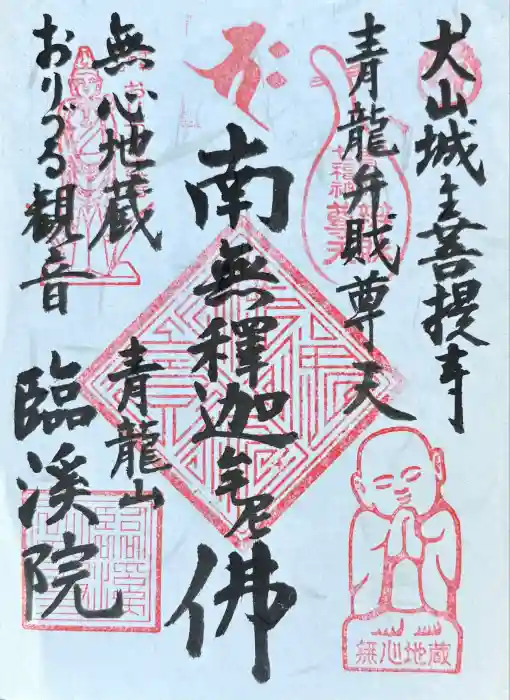 犬山城主菩提寺
青龍弁賎尊天
南無釈迦牟尼佛
無心地蔵
おりづる観音
青龍山
臨溪院
無心地蔵